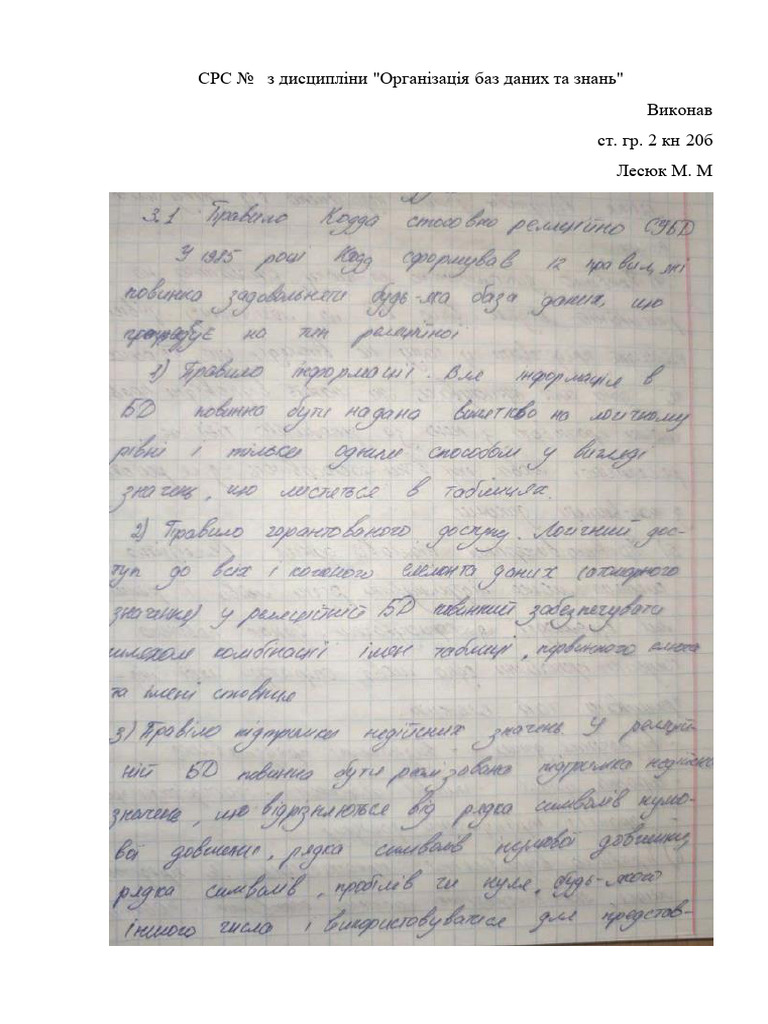 СРС № з дисципліни "Організація баз даних та знань"
Виконав
ст. гр. 2 кн 20б
Лесюк М. М
3.1 Правило Кодда стосовно реляційно СУБД
У 1985 році Кодд сформував 12 правил, які
повинна задовольняти будь-яка база даних, що
на тип реляційної
1) Правило інформації. Вле інформація в
БД повинна бути надана виключно на логічному
рівні і тільки одним способом у вигляді
значень, що містяться в таблицях.
2) Правило гарантованого доступу. Логічний дос-
туп до всіх і кожного елемента даних (атомарного
значення) у реляційній БД повинний забезпечувати
шляхом комбінації імен таблиці, первинного ключа
та імені стовпця
3) Правіло підтримки недійсних значень. У реляцій-
ній БД повинна бути реалізована підтримка недійсних
значень, що відрізняються від рядка символів нульо-
вої довжини, рядка символів нульової довжини,
рядка символів, пробілів чи нуля, будь-якого
іншого числа і використовуватися для представ-